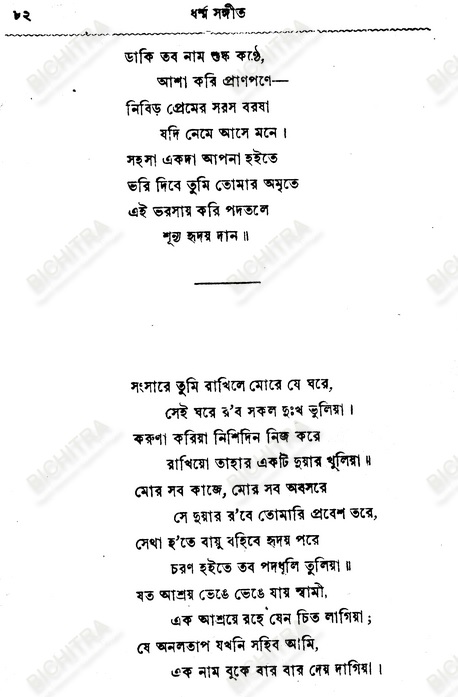 ৮২ ধর্ম্ম সঙ্গীত
ডাকি তব নাম শুষ্ক কণ্ঠে,
আশা করি প্রাণপণে—
নিবিড় প্রেমের সরস বরষা
যদি নেমে আসে মনে।
সহসা একদা আপনা হইতে
ভরি দিবে তুমি তোমার অমৃতে
এই ভরসায় করি পদতলে
শূন্য হৃদয় দান॥
সংসারে তুমি রাখিলে মোরে যে ঘরে,
সেই ঘরে র'ব সকল দুঃখ ভুলিয়া।
করুণা করিয়া নিশিদিন নিজ করে
রাখিয়ো তাহার একটি দুয়ার খুলিয়া॥
মোর সব কাজে, মোর সব অবসরে
সে দুয়ার র'বে তোমারি প্রবেশ তরে,
সেথা হ'তে বায়ু বহিবে হৃদয় পরে
চরণ হইতে তব পদধূলি তুলিয়া॥
যত আশ্রয় ভেঙে ভেঙে যায় স্বামী,
এক আশ্রয়ে রহে যেন চিত লাগিয়া;
যে অনলতাপ যখনি সহিব আমি,
এক নাম বুকে বার বার দেয় দাগিয়া।
BICHITRA
BICHITRA
BICHITRA
BICHITRA
BICHITRA
BICHITRA
BICHITRA
BICHITRA
BICHITRA